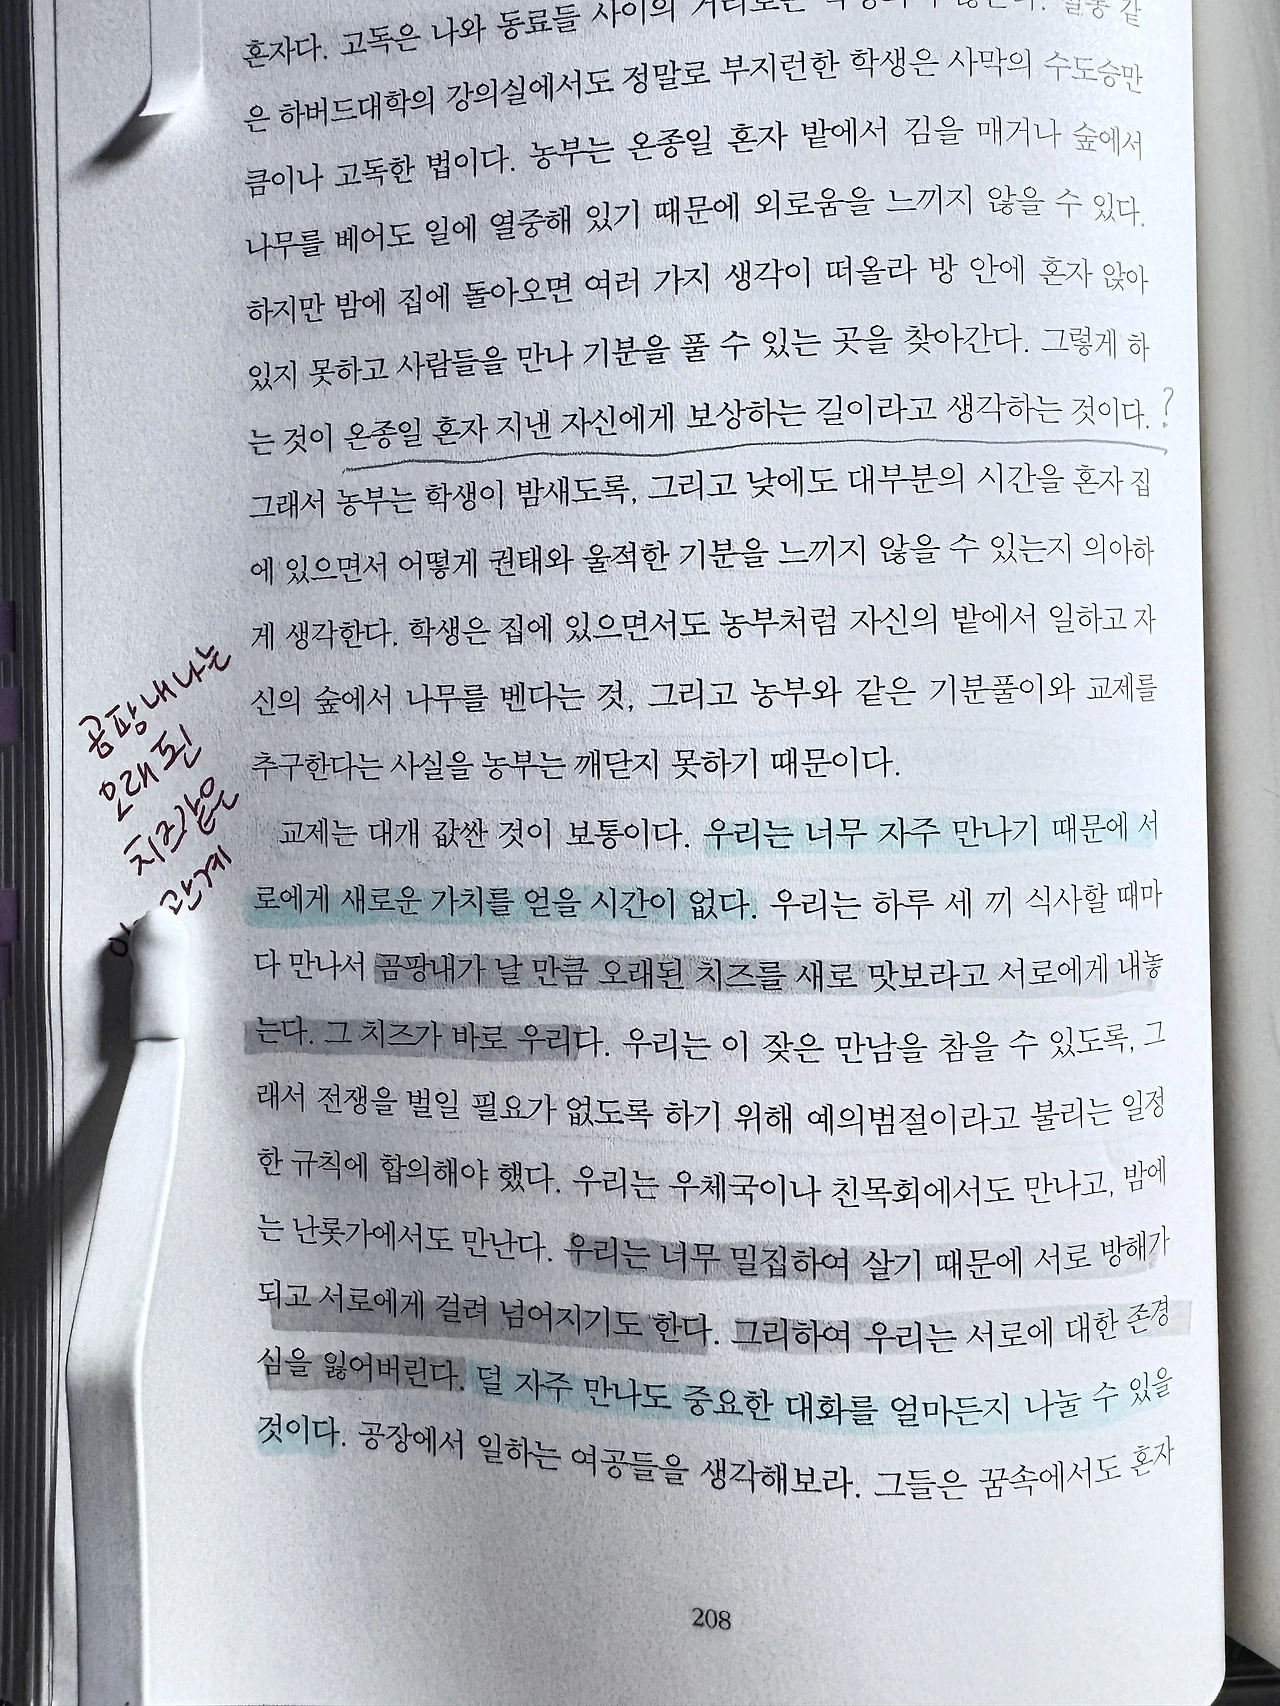 혼자다. 고독은 나와 동료들 사이의
은 하버드대학의 강의실에서도 정말로 부지런한 학생은 사막의 수도승만
큼이나 고독한 법이다. 농부는 온종일 혼자 밭에서 김을 매거나 숲에서
나무를 베어도 일에 열중해 있기 때문에 외로움을 느끼지 않을 수 있다.
하지만 밤에 집에 돌아오면 여러 가지 생각이 떠올라 방 안에 혼자 앉아
있지 못하고 사람들을 만나 기분을 풀 수 있는 곳을 찾아간다. 그렇게 하
는 것이 온종일 혼자 지낸 자신에게 보상하는 길이라고 생각하는 것이다. ?
그래서 농부는 학생이 밤새도록, 그리고 낮에도 대부분의 시간을 혼자 집
에 있으면서 어떻게 권태와 울적한 기분을 느끼지 않을 수 있는지 의아하
게 생각한다. 학생은 집에 있으면서도 농부처럼 자신의 밭에서 일하고 자
신의 숲에서 나무를 벤다는 것, 그리고 농부와 같은 기분풀이와 교제를
추구한다는 사실을 농부는 깨닫지 못하기 때문이다.
곰팡내 나는
오래된
치즈같은
관계
교제는 대개 값싼 것이 보통이다. 우리는 너무 자주 만나기 때문에 서
로에게 새로운 가치를 얻을 시간이 없다. 우리는 하루 세 끼 식사할 때마
다 만나서 곰팡내가 날 만큼 오래된 치즈를 새로 맛보라고 서로에게 내놓
는다. 그 치즈가 바로 우리다. 우리는 이 잦은 만남을 참을 수 있도록, 그
래서 전쟁을 벌일 필요가 없도록 하기 위해 예의범절이라고 불리는 일정
한 규칙에 합의해야 했다. 우리는 우체국이나 친목회에서도 만나고, 밤에
는 난롯가에서도 만난다. 우리는 너무 밀집하여 살기 때문에 서로 방해가
되고 서로에게 걸려 넘어지기도 한다. 그리하여 우리는 서로에 대한 존경
심을 잃어버린다. 덜 자주 만나도 중요한 대화를 얼마든지 나눌 수 있을
것이다. 공장에서 일하는 여공들을 생각해보라. 그들은 꿈속에서도 혼자
208